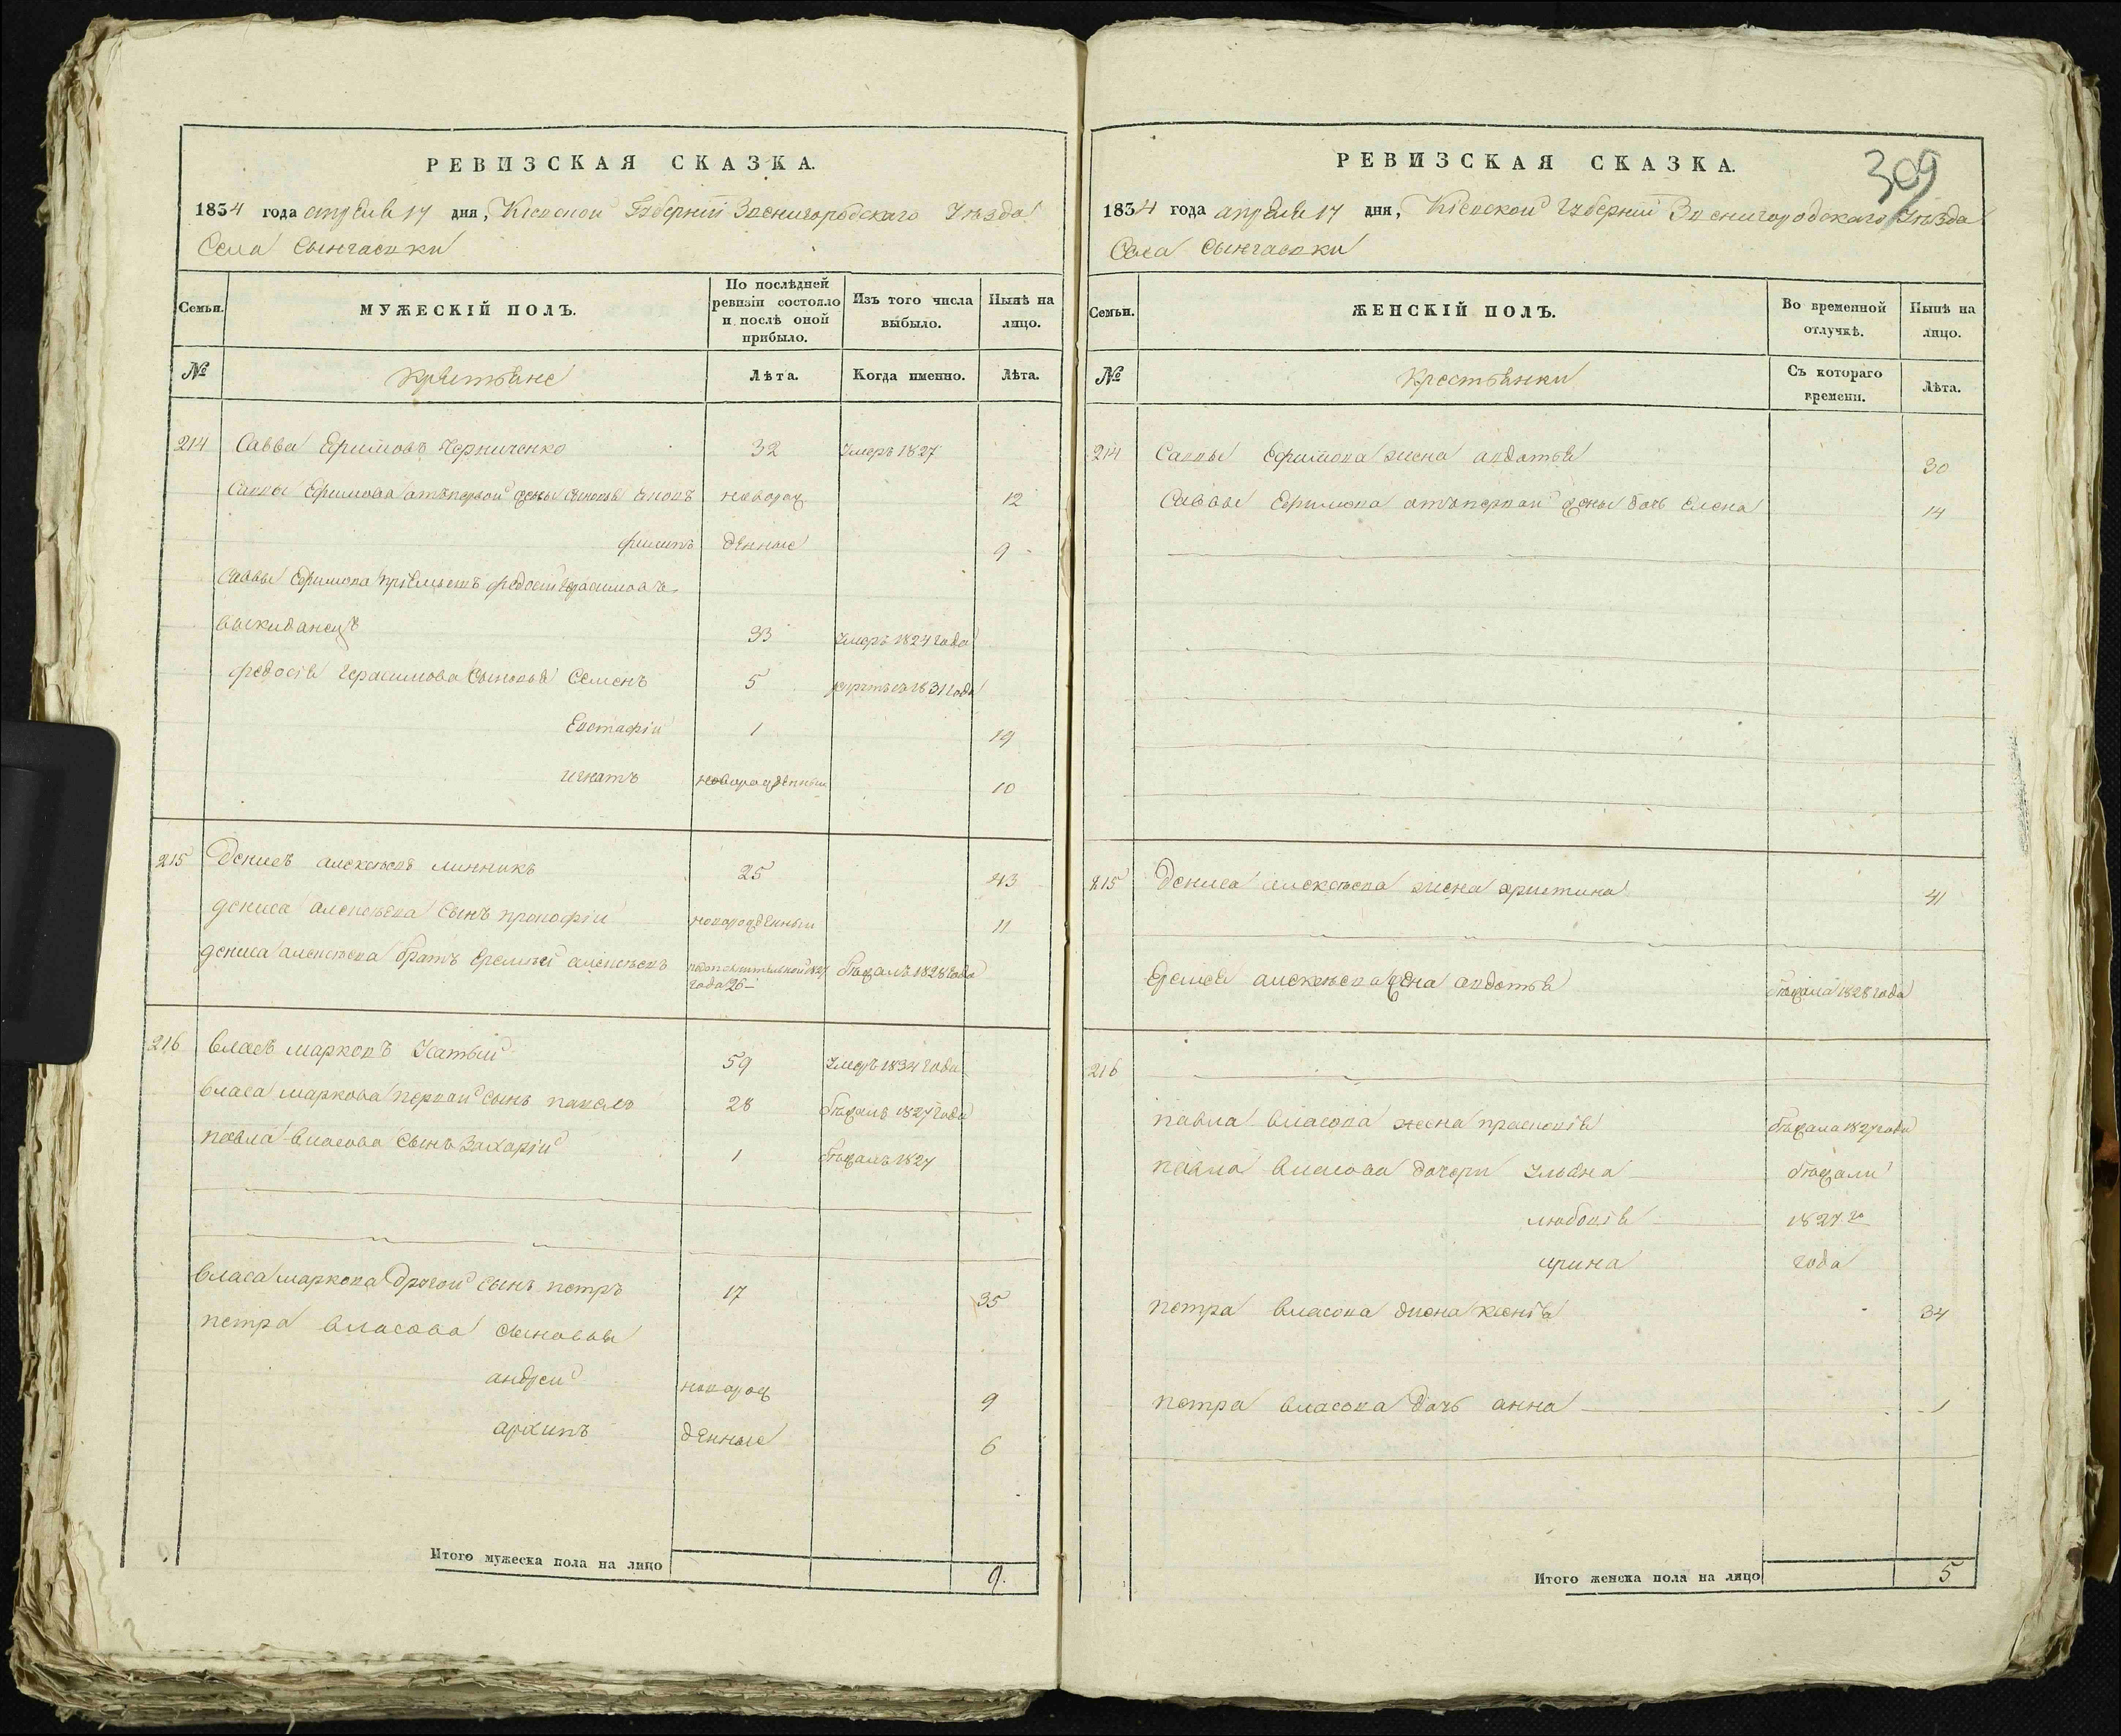 РЕВИЗСКАЯ СКАЗКА.
1834 года апреля 17 дня, Кіевской Губерніи Звенигородскаго Уѣзда
Села
Семьи.
МУЖЕСКІЙ ПОЛЪ.
По послѣдней ревизіи состояло и послѣ оной прибыло.
Изъ того числа выбыло.
Нынѣ на лицо.
№
Крестьяне
Лѣта.
Когда именно.
Лѣта.
214 Савва Ефимовъ Черниченко 32 Умеръ 1827
Саввы Ефимова отъ первой жены сыновья новорож 12
филипъ денные 9
Саввы Ефимова федосій Герасимовъ
33 Умеръ 1824 года
федосія Герасимова сыновья Семенъ 5 1831 года
Евстафій 1 19
игнатъ новорожденный 10
215 Денисъ алексѣевъ линникъ 25 43
дениса алексѣева сынъ прокофій новорожденный 11
дениса алексѣева братъ Еремѣй алексѣевъ 1827 года 26 бѣжалъ 1828 года
216 власъ марковъ Усатый 59 Умеръ 1834 года
власа маркова первой сынъ павелъ 28 бѣжалъ 1827 года
павла власова сынъ Захарій 1 бѣжалъ 1827
власа маркова другой сынъ петръ 17 35
петра власова сыновья
андрей новорож 9
архипъ денные 6
Итого мужеска пола на лицо 9.
РЕВИЗСКАЯ СКАЗКА.
309
1834 года апреля 17 дня, Кіевской Губерніи Звенигородскаго Уѣзда
Села
Семьи.
ЖЕНСКІЙ ПОЛЪ.
Во временной отлучкѣ.
Нынѣ на лицо.
№
Крестьянки
Съ котораго времени.
Лѣта.
214 Саввы Ефимова жена авдотья 30
Саввы Ефимова отъ первой жены дочь Елена 14
215 Дениса алексѣева жена христина 41
Еремея алексѣева жена авдотья бѣжала 1828 года
216
павла власова жена прасковія бѣжала 1827 года
павла власова дочери Ульяна бѣжали
1827 го
ирина года
петра власова жена ксенія 34
петра власова дочь анна 1
Итого женска пола на лицо 5